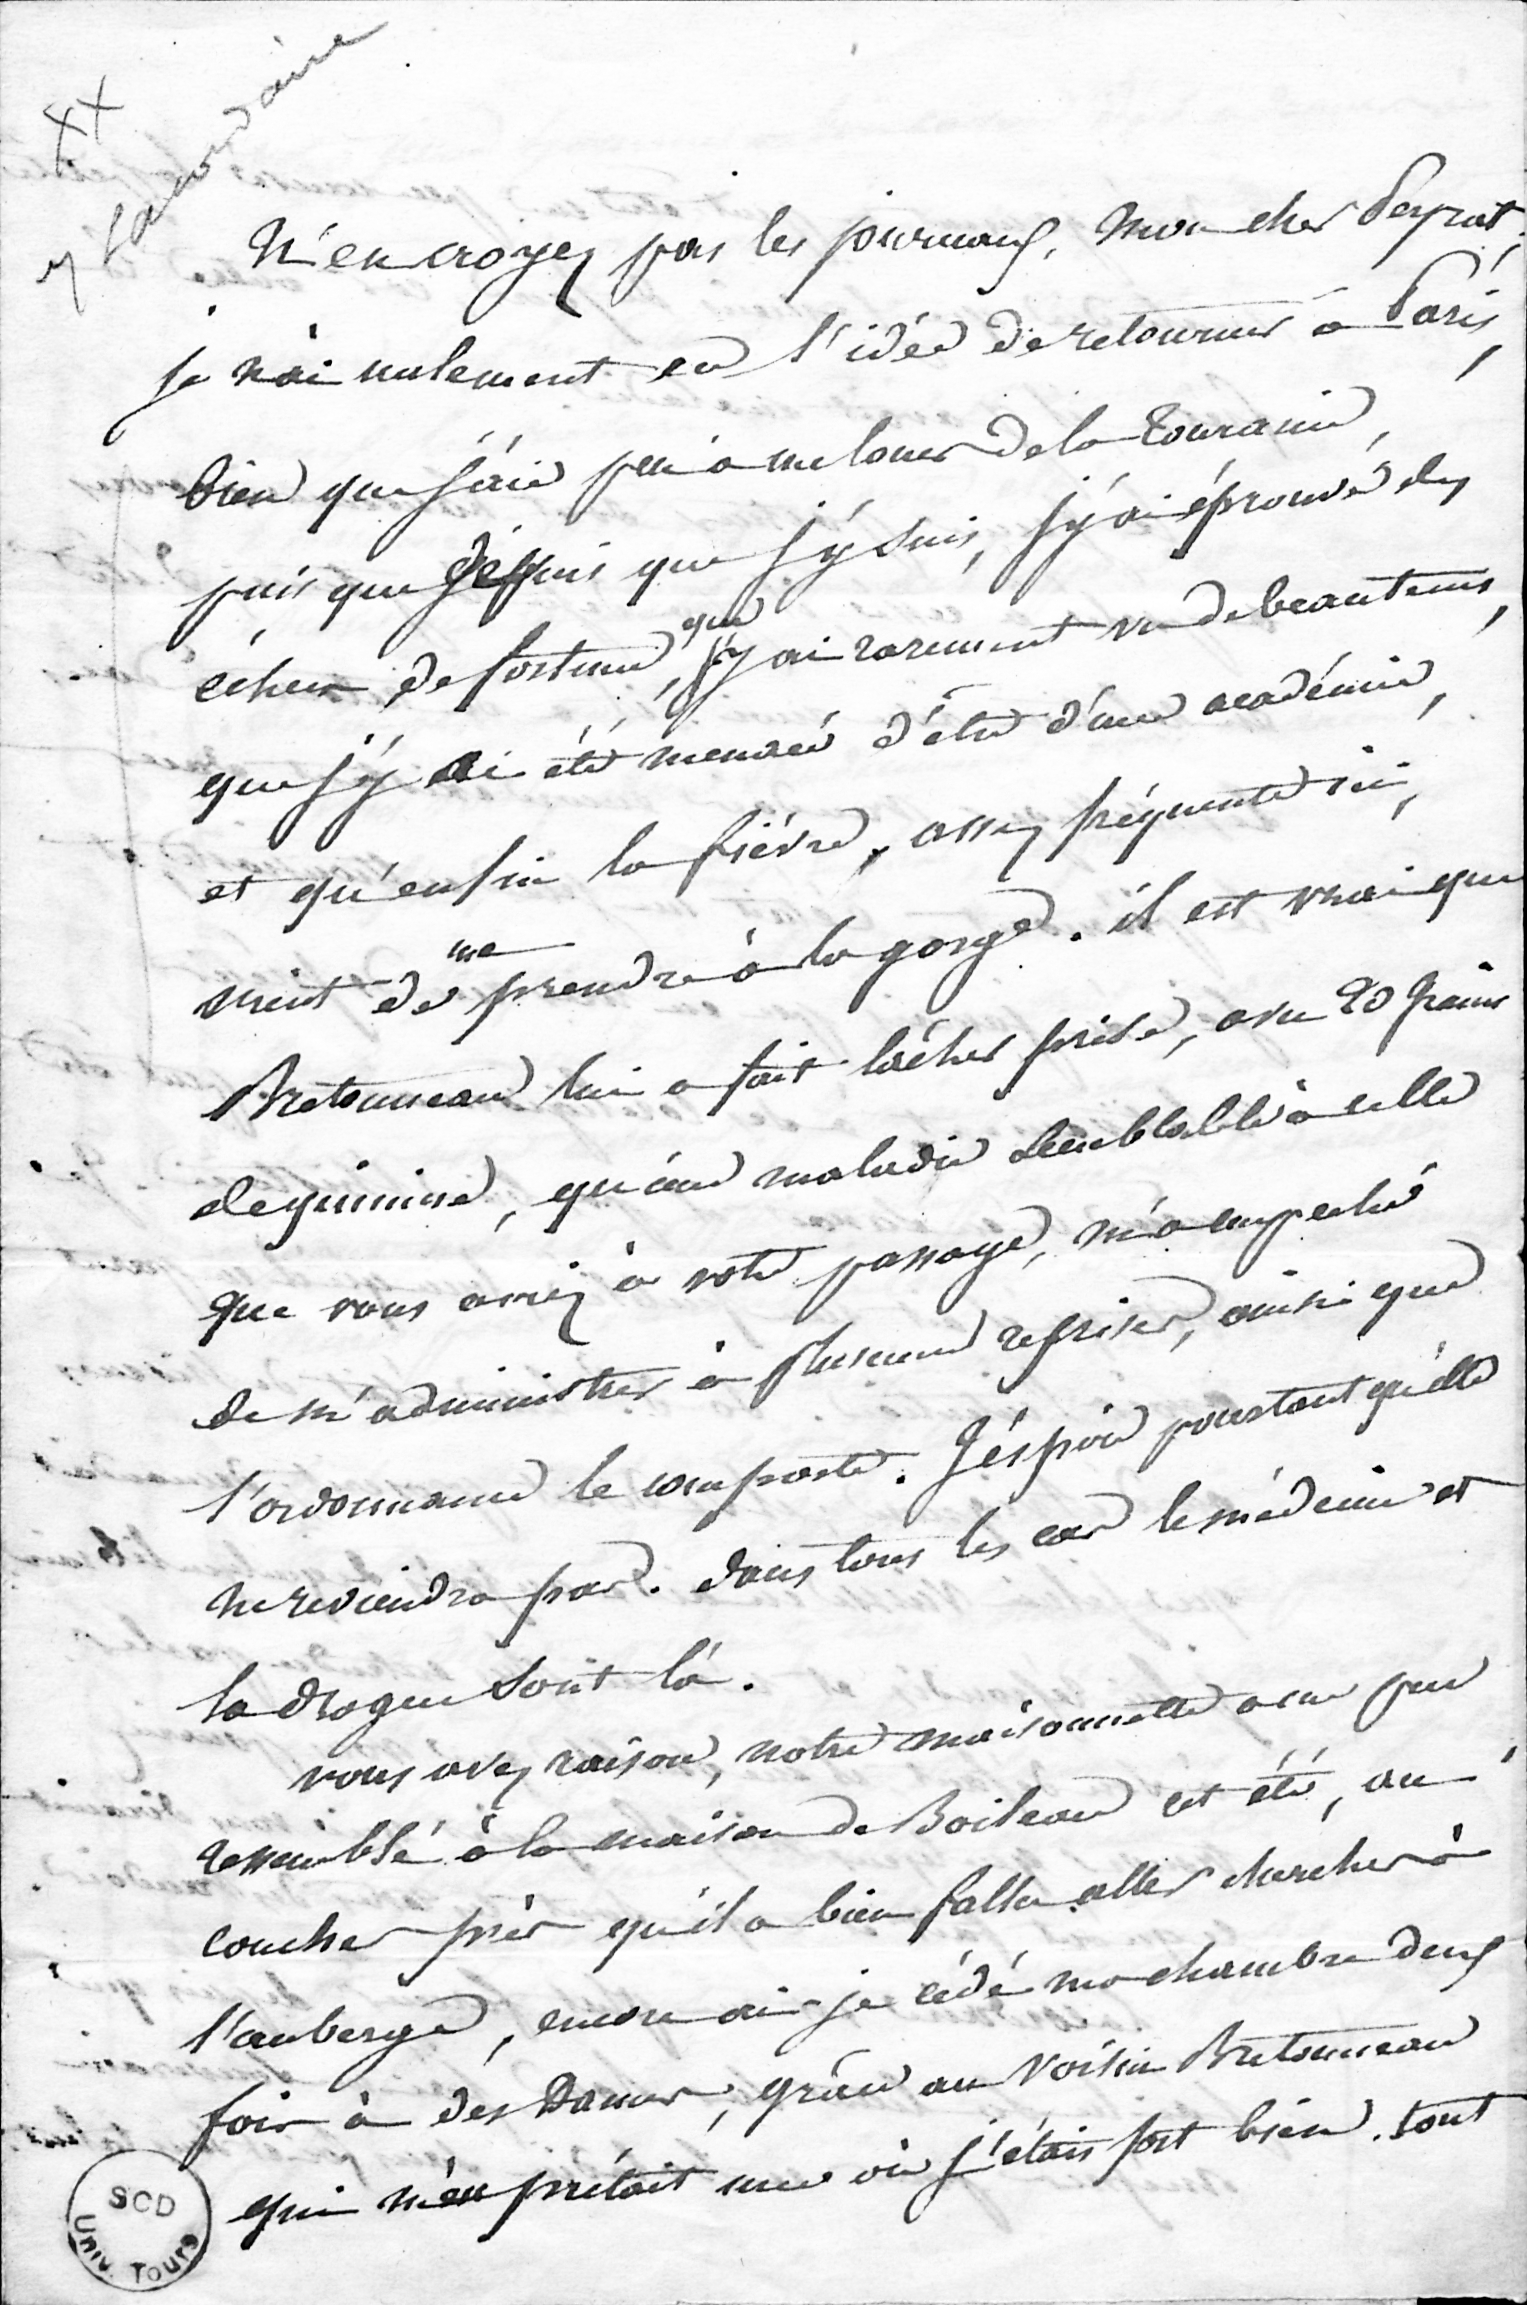 XX
N'en croyez pas les journaux, mon cher Peyrat,
je n'ai nulement eu l'idée de retourner à Paris,
bien que j'aie peu à me louer de la Touraine,
puisque depuis que j'y suis, j'y ai éprouvé des
échecs de fortune, que j'y ai rarement vu de beau tems,
que j'y ai été menacé d'être d'une académie,
et qu'enfin la fièvre, assez fréquente ici,
vient de me prendre à la gorge. il est vrai que
Bretonneau lui a fait lâcher prise, avec 20 grains
de quinine, qu'une maladie semblable à celle
que vous aviez à votre passage, m'a empêché
de m'administrer à plusieurs reprises, ainsi que
l'ordonnance le comporte. J'espère pourtant qu'elle
ne reviendra pas. dans tous les cas le médecin et
la drogue sont là.
vous avez raison, notre maisonnette a un peu
ressemblé à la maison de Boileau cet été, au
coucher près qu'il a bien fallu aller chercher à
l'auberge, encore ai-je cédé ma chambre deux
fois à des Dames, grâce au voisin Bretonneau
qui m'en prêtait une où j'étais fort bien. tout
SCD
Univ. Tours